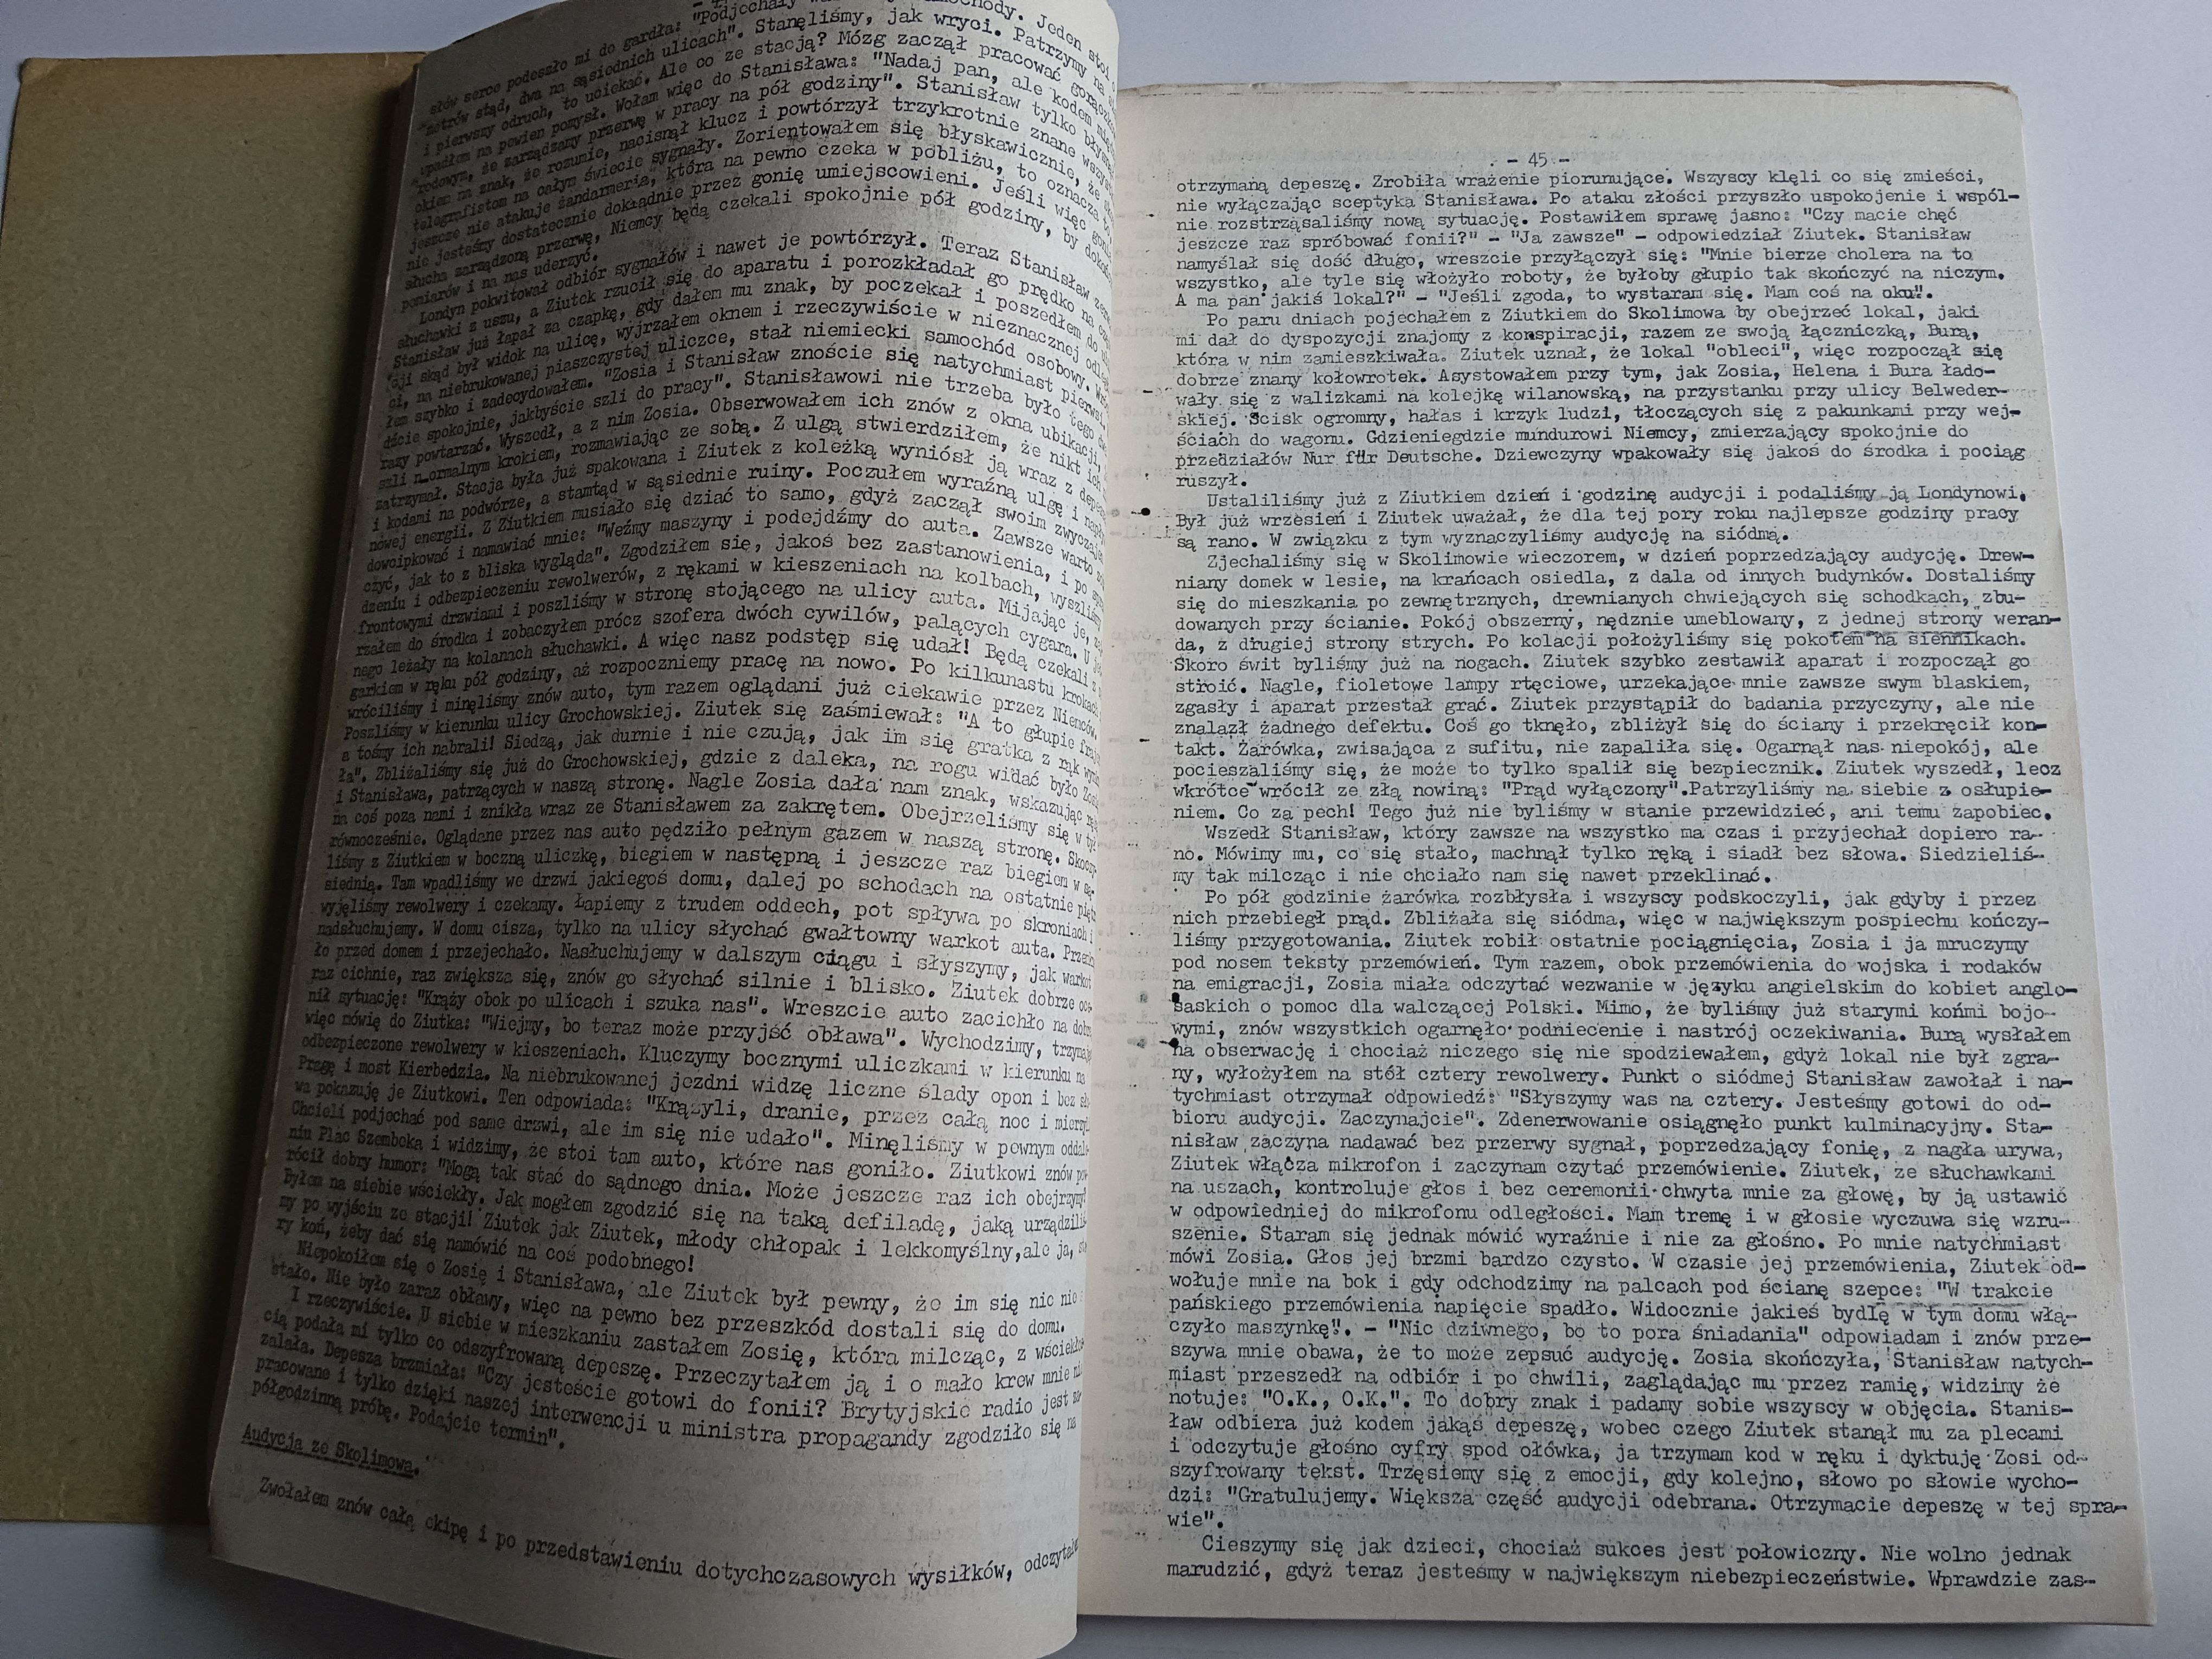 słów serce podeszło mi do gardła: "Podjechały
metrów stąd, dwa na sąsiednich ulicach". Stanęliśmy, jak wryci. Patrzymy na
i pierwszy odruch, to uciekać. Ale co ze stacją? Mózg zaczął pracować
wpadłem na pewien pomysł. Wołam więc do Stanisława: "Nadaj pan, ale kodem
rodowym, że zarządzamy przerwę w pracy na pół godziny". Stanisław tylko
okiem na znak, że rozumie, nacisnął klucz i powtórzył trzykrotnie znane
telegrafistom na całym świecie sygnały. Zorientowałem się błyskawicznie, że
jeszcze nie atakuje żandarmeria, która na pewno czeka w pobliżu, to oznacza
nie jesteśmy dostatecznie dokładnie przez gonię umiejscowieni. Jeśli więc
słucha zarządzoną przerwę, Niemcy będą czekali spokojnie pół godziny, by
pomiarów i na nas uderzyć.
Londyn pokwitował odbiór sygnałów i nawet je powtórzył. Teraz Stanisław
słuchawki z uszu, a Ziutek rzucił się do aparatu i porozkładał go prędko na
Stanisław już łapał za czapkę, gdy dałem mu znak, by poczekał i poszedłem do
cji skąd był widok na ulicę, wyjrzałem oknem i rzeczywiście w nieznacznej
ci, na niebrukowanej piaszczystej uliczce, stał niemiecki samochód osobowy.
łem szybko i zadecydowałem. "Zosia i Stanisław znoście się natychmiast
dźcie spokojnie, jakbyście szli do pracy". Stanisławowi nie trzeba było tego
razy powtarzać. Wyszedł, a z nim Zosia. Obserwowałem ich znów z okna ubikacji,
szli n_ormalnym krokiem, rozmawiając ze sobą. Z ulgą stwierdziłem, że nikt ich
zatrzymał. Stacja była już spakowana i Ziutek z koleżką wyniósł ją wraz z
i kodami na podwórze, a stamtąd w sąsiednie ruiny. Poczułem wyraźną ulgę i
nowej energii. Z Ziutkiem musiało się dziać to samo, gdyż zaczął swoim
dowcipkować i namawiać mnie: "Weźmy maszyny i podejdźmy do auta. Zawsze warto
czyć, jak to z bliska wygląda". Zgodziłem się, jakoś bez zastanowienia, i po
dzeniu i odbezpieczeniu rewolwerów, z rękami w kieszeniach na kolbach, wyszliśmy
frontowymi drzwiami i poszliśmy w stronę stojącego na ulicy auta. Mijając je,
rzałem do środka i zobaczyłem prócz szofera dwóch cywilów, palących cygara. U
nego leżały na kolanach słuchawki. A więc nasz podstęp się udał! Będą czekali z
garkiem w ręku pół godziny, aż rozpoczniemy pracę na nowo. Po kilkunastu krokach
wróciliśmy i minęliśmy znów auto, tym razem oglądani już ciekawie przez Niemców.
Poszliśmy w kierunku ulicy Grochowskiej. Ziutek się zaśmiewał: "A to głupie
a tośmy ich nabrali! Siedzą, jak durnie i nie czują, jak im się gratka z rąk
ła". Zbliżaliśmy się już do Grochowskiej, gdzie z daleka, na rogu widać było
i Stanisława, patrzących w naszą stronę. Nagle Zosia dała nam znak, wskazując
na coś poza nami i znikła wraz ze Stanisławem za zakrętem. Obejrzeliśmy się w
równocześnie. Oglądane przez nas auto pędziło pełnym gazem w naszą stronę.
liśmy z Ziutkiem w boczną uliczkę, biegiem w następną i jeszcze raz biegiem w
siednią. Tam wpadliśmy we drzwi jakiegoś domu, dalej po schodach na ostatnie
wyjęliśmy rewolwery i czekamy. Łapiemy z trudem oddech, pot spływa po skroniach i
nadsłuchujemy. W domu cisza, tylko na ulicy słychać gwałtowny warkot auta.
ło przed domem i przejechało. Nasłuchujemy w dalszym ciągu i słyszymy, jak warkot
raz cichnie, raz zwiększa się, znów go słychać silnie i blisko. Ziutek dobrze
nił sytuację: "Krąży obok po ulicach i szuka nas". Wreszcie auto zacichło na
więc mówię do Ziutka: "Wiejmy, bo teraz może przyjść obława". Wychodzimy,
odbezpieczone rewolwery w kieszeniach. Kluczymy bocznymi uliczkami w kierunku na
Pragę i most Kierbedzia. Na niebrukowanej jezdni widzę liczne ślady opon i bez
wa pokazuję je Ziutkowi. Ten odpowiada: "Krążyli, dranie, przez całą noc i
Chcieli podjechać pod same drzwi, ale im się nie udało". Minęliśmy w pewnym
niu Plac Szembeka i widzimy, że stoi tam auto, które nas goniło. Ziutkowi znów
rócił dobry humor: "Mogą tak stać do sądnego dnia. Może jeszcze raz ich
Byłem na siebie wściekły. Jak mogłem zgodzić się na taką defiladę, jaką
my po wyjściu ze stacji! Ziutek jak Ziutek, młody chłopak i lekkomyślny,ale ja,
ry koń, żeby dać się namówić na coś podobnego!
Niepokoiłem się o Zosię i Stanisława, ale Ziutek był pewny, że im się nic nie
stało. Nie było zaraz obławy, więc na pewno bez przeszkód dostali się do domu.
I rzeczywiście. U siebie w mieszkaniu zastałem Zosię, która milcząc, z
cią podała mi tylko co odszyfrowaną depeszę. Przeczytałem ją i o mało krew mnie nie
zalała. Depesza brzmiała: "Czy jesteście gotowi do fonii? Brytyjskie radio jest
pracowane i tylko dzięki naszej interwencji u ministra propagandy zgodziło się na
półgodzinną próbę. Podajcie termin".
Audycja ze Skolimowa.
Zwołałem znów całą ekipę i po przedstawieniu dotychczasowych wysiłków,
- 45 -
otrzymaną depeszę. Zrobiła wrażenie piorunujące. Wszyscy klęli co się zmieści,
nie wyłączając sceptyka Stanisława. Po ataku złości przyszło uspokojenie i wspól-
nie rozstrząsaliśmy nową sytuację. Postawiłem sprawę jasno: "Czy macie chęć
jeszcze raz spróbować fonii?" - "Ja zawsze" - odpowiedział Ziutek. Stanisław
namyślał się dość długo, wreszcie przyłączył się: "Mnie bierze cholera na to
wszystko, ale tyle się włożyło roboty, że byłoby głupio tak skończyć na niczym.
A ma pan jakiś lokal?" - "Jeśli zgoda, to wystaram się. Mam coś na oku".
Po paru dniach pojechałem z Ziutkiem do Skolimowa by obejrzeć lokal, jaki
mi dał do dyspozycji znajomy z konspiracji, razem ze swoją łączniczką, Burą,
która w nim zamieszkiwała. Ziutek uznał, że lokal "obleci", więc rozpoczął się
dobrze znany kołowrotek. Asystowałem przy tym, jak Zosia, Helena i Bura łado-
wały się z walizkami na kolejkę wilanowską, na przystanku przy ulicy Belweder-
skiej. Ścisk ogromny, hałas i krzyk ludzi, tłoczących się z pakunkami przy wej-
ściach do wagonu. Gdzieniegdzie mundurowi Niemcy, zmierzający spokojnie do
przedziałów Nur für Deutsche. Dziewczyny wpakowały się jakoś do środka i pociąg
ruszył.
Ustaliliśmy już z Ziutkiem dzień i godzinę audycji i podaliśmy ją Londynowi.
Był już wrzesień i Ziutek uważał, że dla tej pory roku najlepsze godziny pracy
są rano. W związku z tym wyznaczyliśmy audycję na siódmą.
Zjechaliśmy się w Skolimowie wieczorem, w dzień poprzedzający audycję. Drew-
niany domek w lesie, na krańcach osiedla, z dala od innych budynków. Dostaliśmy
się do mieszkania po zewnętrznych, drewnianych chwiejących się schodkach, zbu-
dowanych przy ścianie. Pokój obszerny, nędznie umeblowany, z jednej strony weran-
da, z drugiej strony strych. Po kolacji położyliśmy się pokotem na siennikach.
Skoro świt byliśmy już na nogach. Ziutek szybko zestawił aparat i rozpoczął go
stroić. Nagle, fioletowe lampy rtęciowe, urzekające mnie zawsze swym blaskiem,
zgasły i aparat przestał grać. Ziutek przystąpił do badania przyczyny, ale nie
znalazł żadnego defektu. Coś go tknęło, zbliżył się do ściany i przekręcił kon-
takt. Żarówka, zwisająca z sufitu, nie zapaliła się. Ogarnął nas niepokój, ale
pocieszaliśmy się, że może to tylko spalił się bezpiecznik. Ziutek wyszedł, lecz
wkrótce wrócił ze złą nowiną: "Prąd wyłączony".Patrzyliśmy na siebie z osłupie-
niem. Co za pech! Tego już nie byliśmy w stanie przewidzieć, ani temu zapobiec.
Wszedł Stanisław, który zawsze na wszystko ma czas i przyjechał dopiero ra-
no. Mówimy mu, co się stało, machnął tylko ręką i siadł bez słowa. Siedzieliś-
my tak milcząc i nie chciało nam się nawet przeklinać.
Po pół godzinie żarówka rozbłysła i wszyscy podskoczyli, jak gdyby i przez
nich przebiegł prąd. Zbliżała się siódma, więc w największym pospiechu kończy-
liśmy przygotowania. Ziutek robił ostatnie pociągnięcia, Zosia i ja mruczymy
pod nosem teksty przemówień. Tym razem, obok przemówienia do wojska i rodaków
na emigracji, Zosia miała odczytać wezwanie w języku angielskim do kobiet anglo-
saskich o pomoc dla walczącej Polski. Mimo, że byliśmy już starymi końmi bojo-
wymi, znów wszystkich ogarnęło podniecenie i nastrój oczekiwania. Burą wysłałem
na obserwację i chociaż niczego się nie spodziewałem, gdyż lokal nie był zgra-
ny, wyłożyłem na stół cztery rewolwery. Punkt o siódmej Stanisław zawołał i na-
tychmiast otrzymał odpowiedź: "Słyszymy was na cztery. Jesteśmy gotowi do od-
bioru audycji. Zaczynajcie". Zdenerwowanie osiągnęło punkt kulminacyjny. Sta-
nisław zaczyna nadawać bez przerwy sygnał, poprzedzający fonię, z nagła urywa,
Ziutek włącza mikrofon i zaczynam czytać przemówienie. Ziutek, ze słuchawkami
na uszach, kontroluje głos i bez ceremonii chwyta mnie za głowę, by ją ustawić
w odpowiedniej do mikrofonu odległości. Mam tremę i w głosie wyczuwa się wzru-
szenie. Staram się jednak mówić wyraźnie i nie za głośno. Po mnie natychmiast
mówi Zosia. Głos jej brzmi bardzo czysto. W czasie jej przemówienia, Ziutek od-
wołuje mnie na bok i gdy odchodzimy na palcach pod ścianę szepce: "W trakcie
pańskiego przemówienia napięcie spadło. Widocznie jakieś bydlę w tym domu włą-
czyło maszynkę". - "Nic dziwnego, bo to pora śniadania" odpowiadam i znów prze-
szywa mnie obawa, że to może zepsuć audycję. Zosia skończyła, Stanisław natych-
miast przeszedł na odbiór i po chwili, zaglądając mu przez ramię, widzimy że
notuje: "O.K., O.K.". To dobry znak i padamy sobie wszyscy w objęcia. Stanis-
ław odbiera już kodem jakąś depeszę, wobec czego Ziutek stanął mu za plecami
i odczytuje głośno cyfry spod ołówka, ja trzymam kod w ręku i dyktuję Zosi od-
szyfrowany tekst. Trzęsiemy się z emocji, gdy kolejno, słowo po słowie wycho-
dzi: "Gratulujemy. Większa część audycji odebrana. Otrzymacie depeszę w tej spra-
wie".
Cieszymy się jak dzieci, chociaż sukces jest połowiczny. Nie wolno jednak
marudzić, gdyż teraz jesteśmy w największym niebezpieczeństwie. Wprawdzie zas-